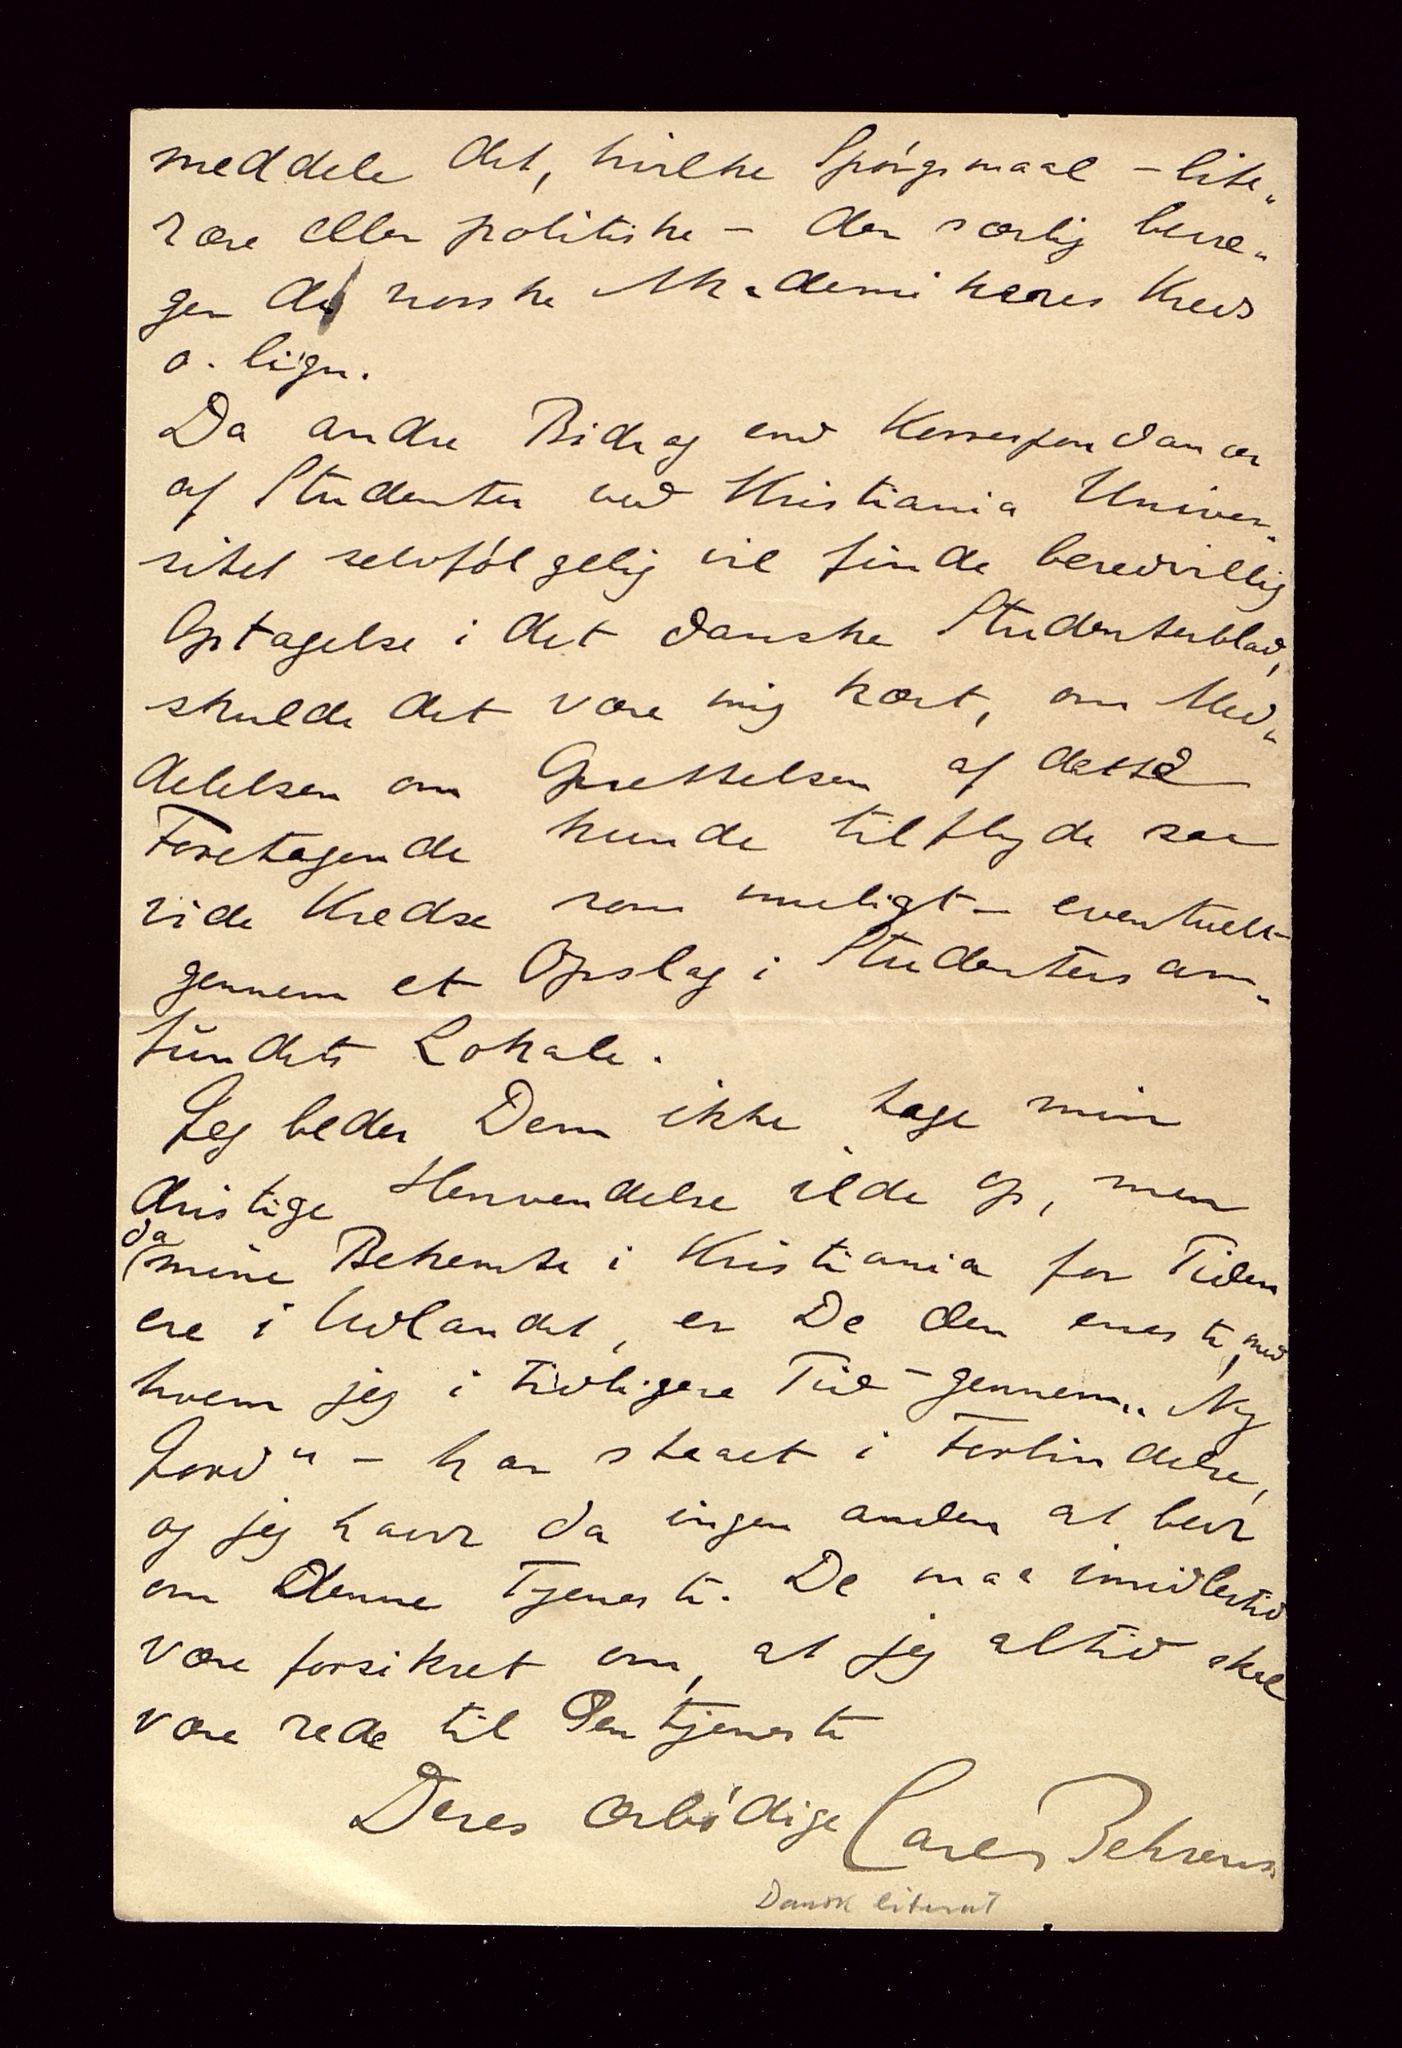 meddele det, hvilke Spórgsmaal – lite„
rære eller politiske – der særlig bevæ„
ger de norske Akademikeres Kreds
o. lign.
Da andre Bidrag end Korrespondancer
af Studenter ved Kristiania Univer„
sitet selvfólgelig vil finde beredvillig
Optagelse i det danske Studenterblad,
skulde det være mig kært, om Med„
delelsen om Oprettelsen af dette
Foretagende kunde tilflyde saa
vide Kredse som muligt – eventuelt –
gennem et Opslag i Studentersam„
fundets Lokale.
Jeg beder Dem ikke tage min
dristige Henvendelse ilde op, men
da
mine Bekendte i Kristiania for Tiden
ere i Udlandet, er De den eneste, med
hvem jeg i tidligere Tid – gennem „Ny
Jord" – har staaet i Forbindelse,
og jeg havde da ingen anden at bede
om denne Tjeneste. De maa imidlertid
være forsikret om, at jeg altid skal
være rede til Gentjeneste
Deres ærbódige Carl Behrens
Dansk literat